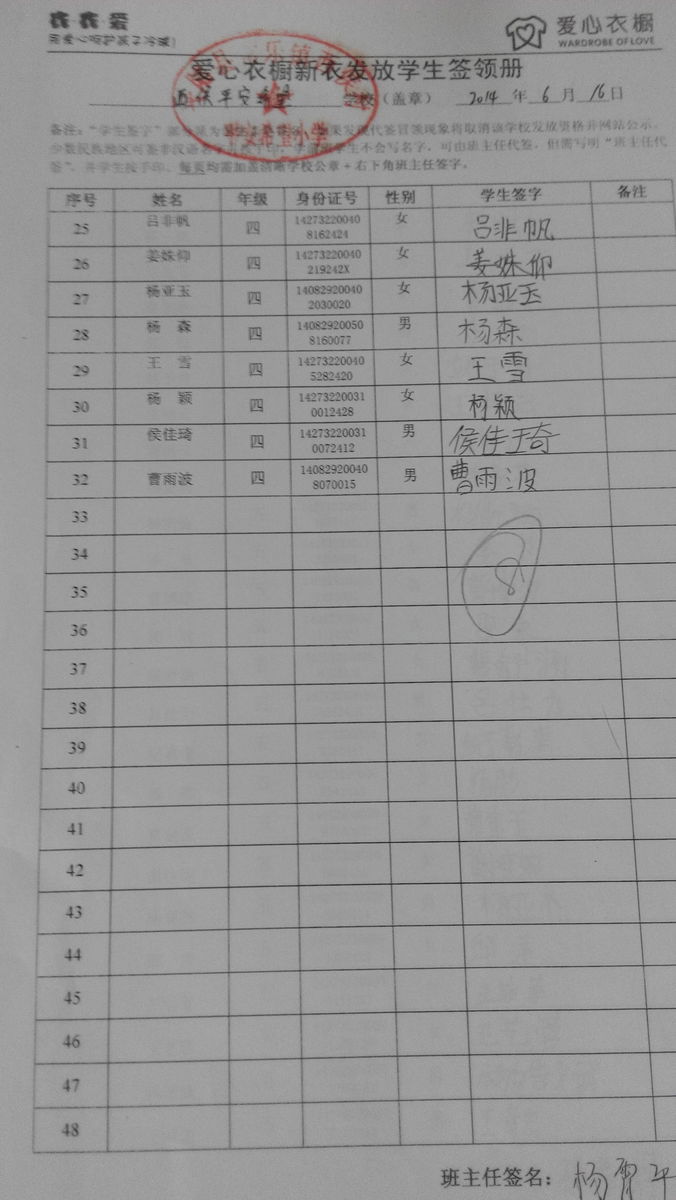 衣衣爱
用爱心呵护孩子冷暖!
爱心衣橱
WARDROBE OF LOVE
爱心衣橱新衣发放学生签领册
学校（盖章） 2014 年 6 月 16 日
序号 姓名 年级 身份证号 性别 学生签字 备注
25 吕非帆 四 142732200408162424 女 吕非帆
26 姜姝仰 四 14273220040219242X 女 姜姝仰
27 杨亚玉 四 140829200402030020 女 杨亚玉
28 杨 森 四 140829200508160077 男 杨森
29 王 雪 四 142732200405282420 女 王雪
30 杨 颖 四 142732200310012428 女 杨颖
31 侯佳琦 四 142732200310072412 男 侯佳琦
32 曹雨波 四 140829200408070015 男 曹雨波
33
34
8
35
36
37
38
39
40
41
42
43
44
45
46
47
48
班主任签名：